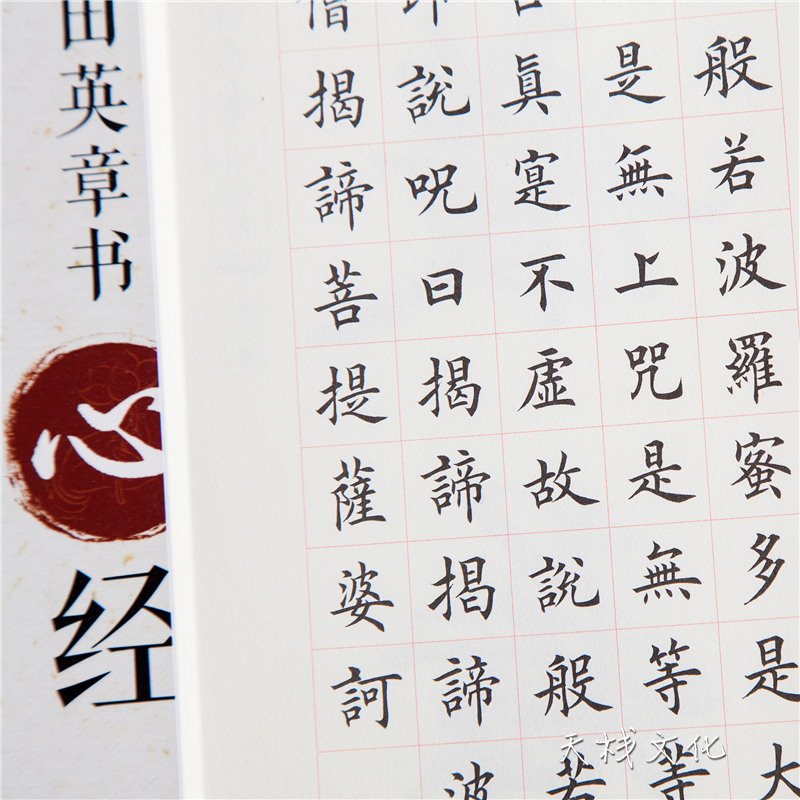 田英章书
心
经
般若波羅蜜多是大
是無上咒是無等等
眞寔不虚故說般若
即說呪曰揭諦揭諦波
僧揭諦菩提薩婆訶
天栈文化